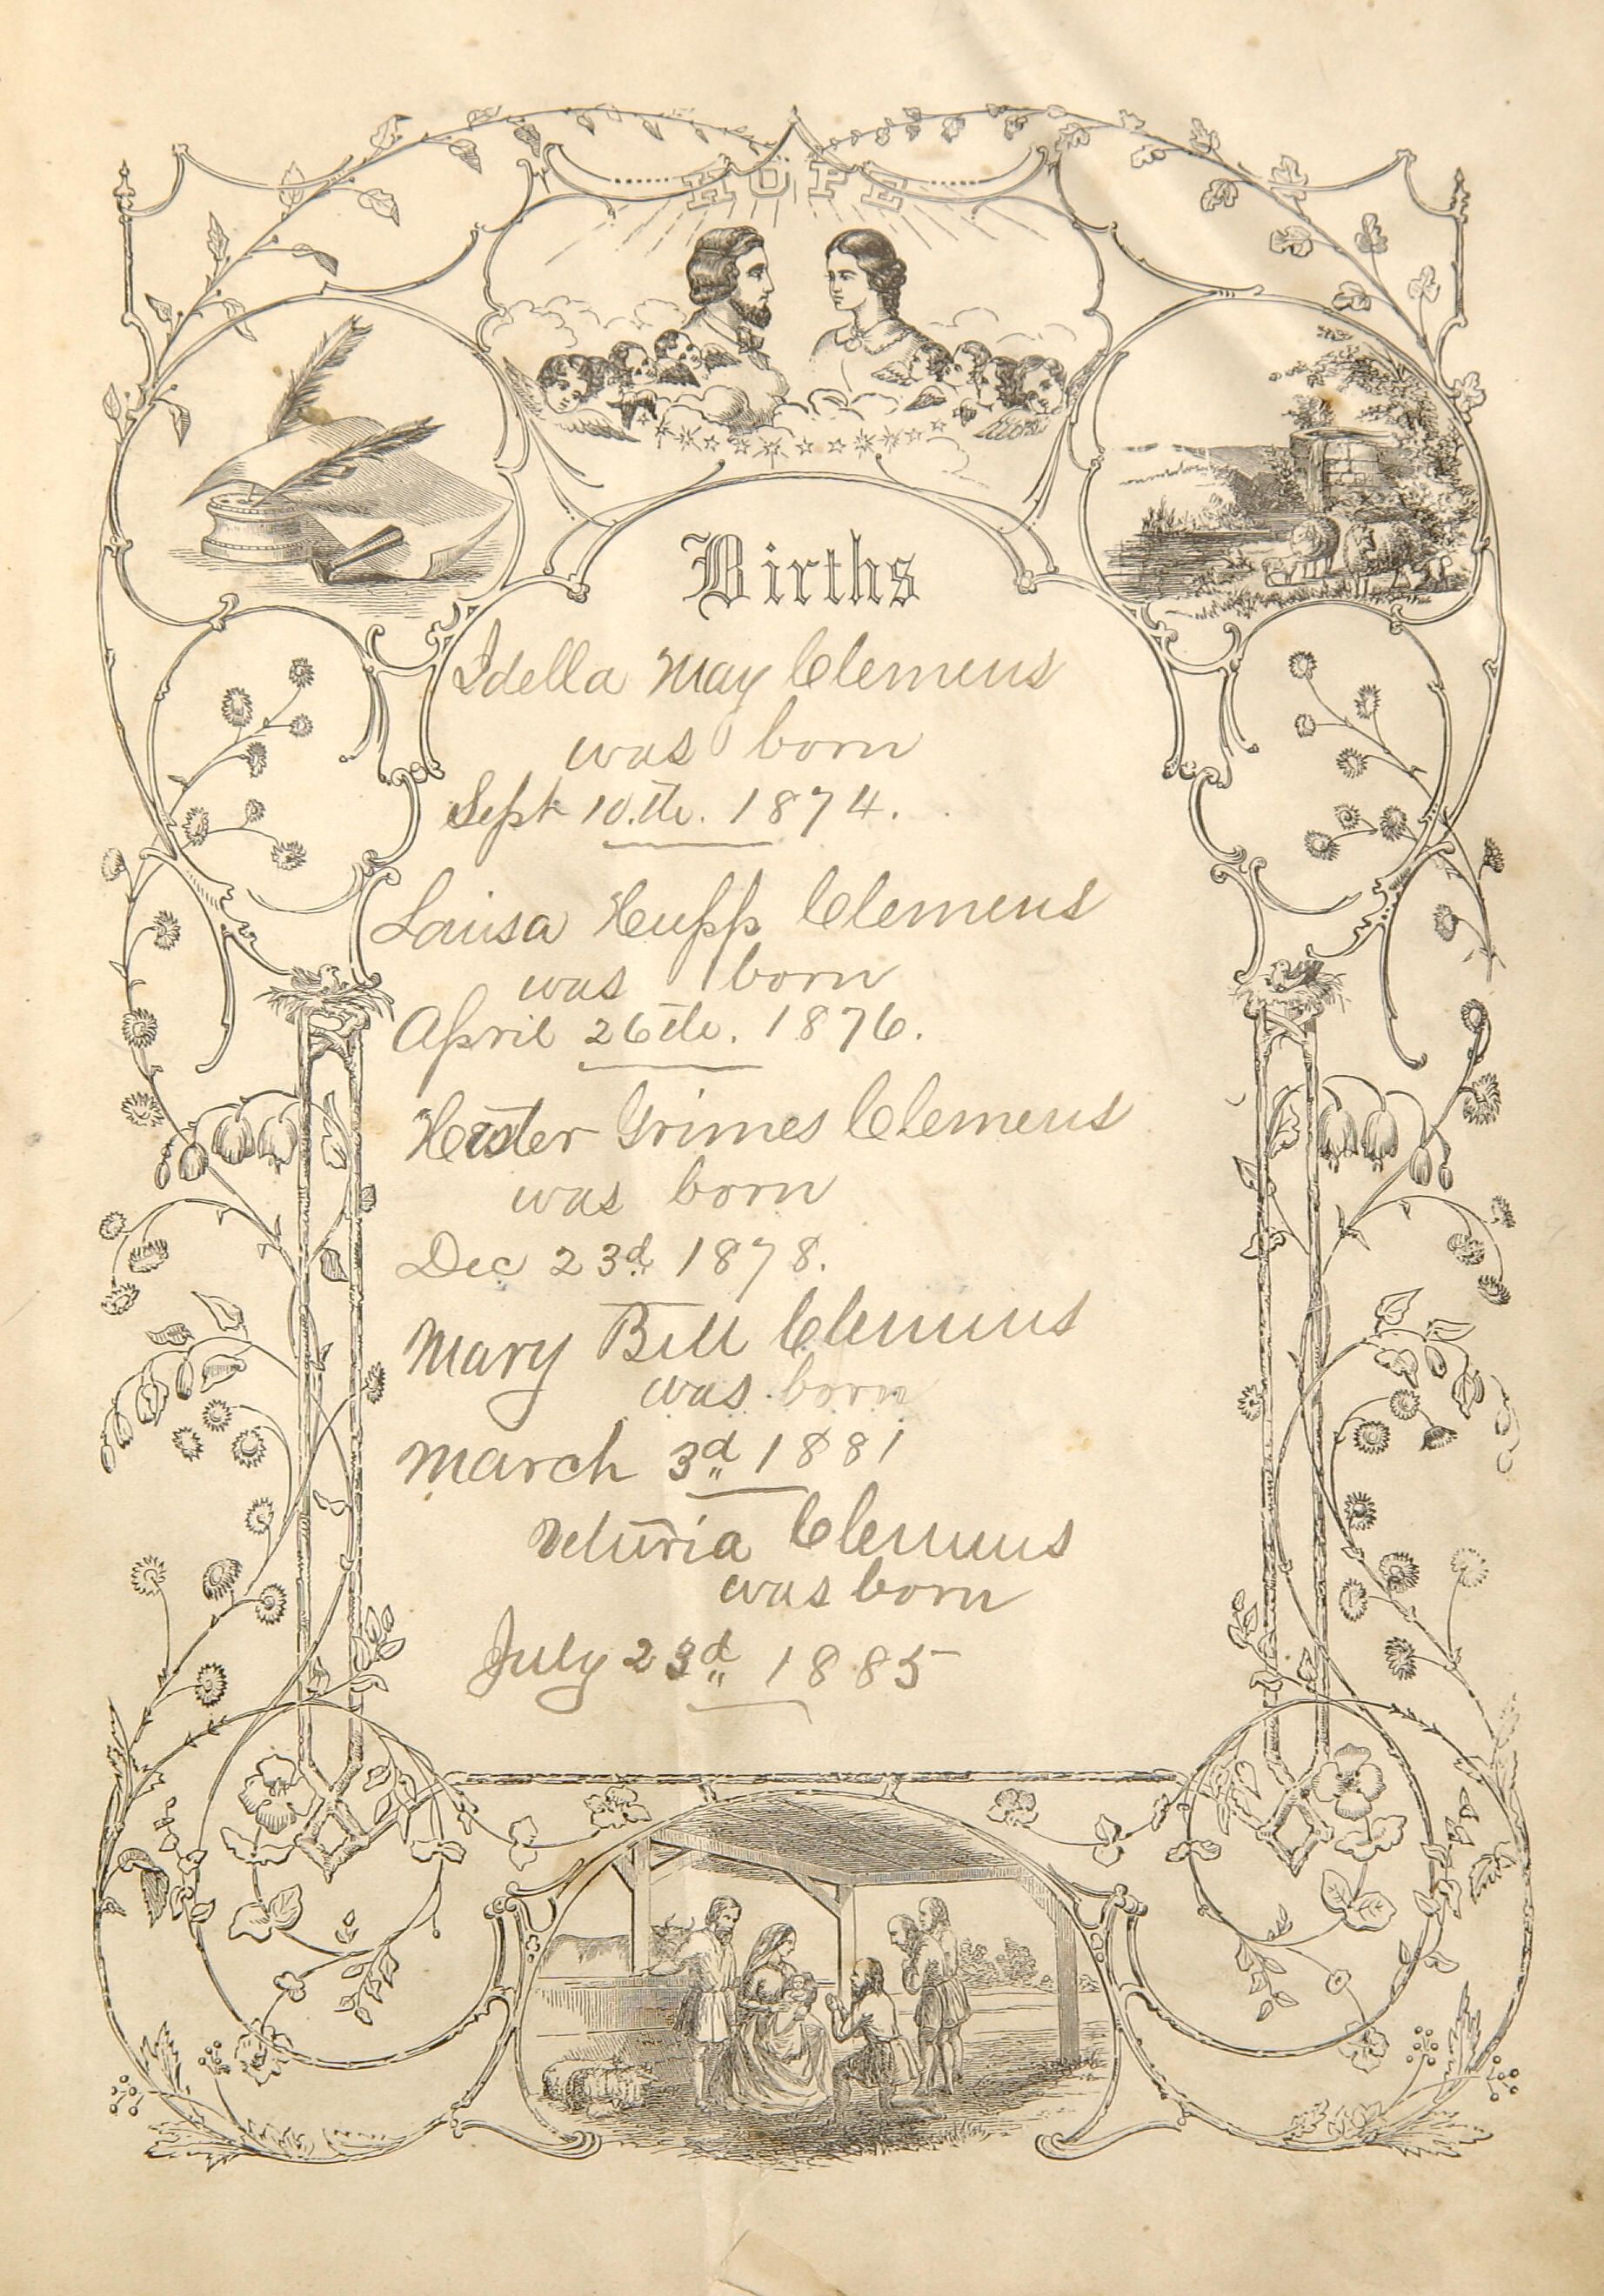 HOPE
Births
Idella May Clemens
was born
Sept 10.th. 1874.
Louisa Hupp Clemens
was born
April 26th. 1876.
Hester Grimes Clemens
was born
Dec 23d 1878.
Mary Bell Clemens
was born
March 3d 1881
Veturia Clemens
was born
July 23d 1885